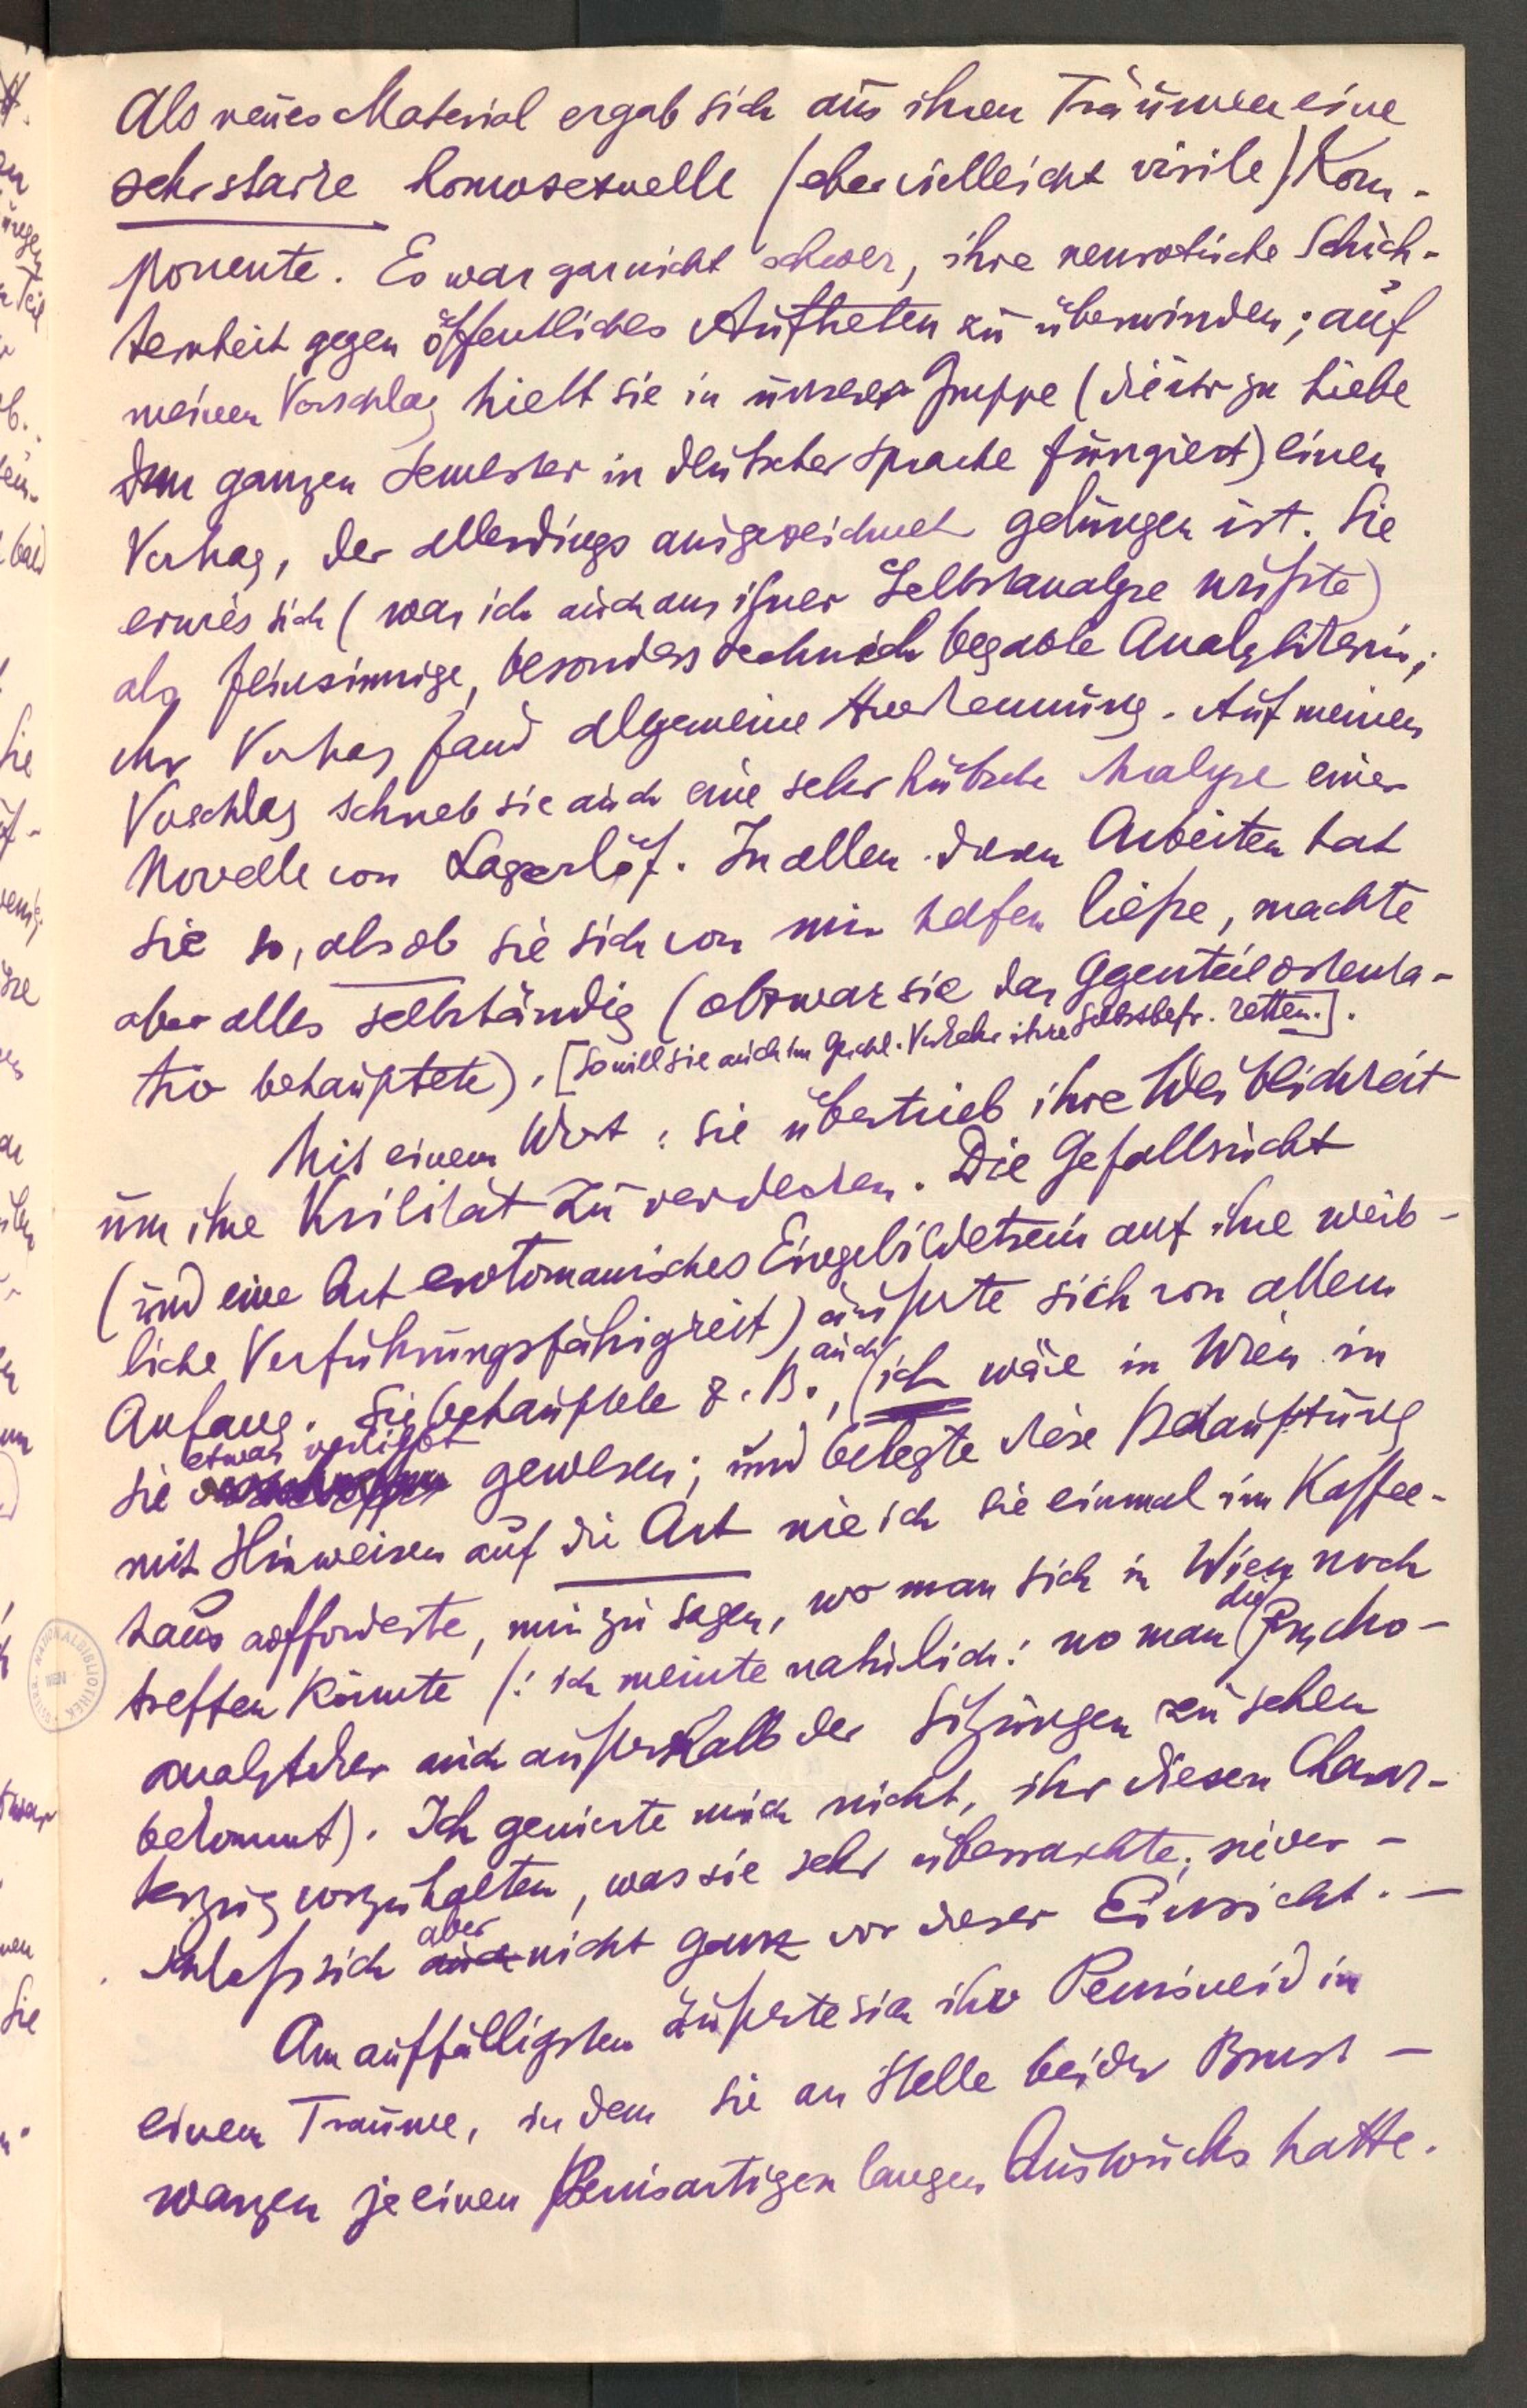 Als neues Material ergab sich aus ihren Träumen eine
sehr starke homosexuelle (aber vielleicht virile) Kom-
ponente. Es war gar nicht schwer, ihre neurotische Schüch-
ternheit gegen öffentliches Auftreten zu überwinden; auf
meinen Vorschlag hielt sie in unserer Gruppe (die ihr zu Liebe
den ganzen Semester in deutscher Sprache fungiert) einen
Vortrag, der allerdings ausgezeichnet gelungen ist. Sie
erwies sich (was ich auch aus ihrer Selbstanalyse wußte)
als feinsinnige, besonders technisch begabte Analytikerin;
ihr Vortrag fand allgemeine Anerkennung. Auf meinen
Vorschlag schrieb sie auch eine sehr hübsche Analyse einer
Novelle von Lagerlöf. In allen diesen Arbeiten tat
sie so, als ob sie sich von mir helfen ließe, machte
aber alles selbständig (obzwar sie das Gegenteil ostenta-
tiv behauptete). [So will sie auch im Geschl. Verkehr ihre Selbstbefr. retten.].
Mit einem Wort: sie übertrieb ihre Weiblichkeit
um ihre Virilität zu verdecken. Die Gefallsucht
(und eine Art erotomanisches Eingebildetsein auf ihre weib-
liche Verführungsfähigkeit) äußerte sich von allem
Anfang. Sie behauptete z. B., auch ich wäre in Wien in
sie etwas verliebt gewesen; und belegte diese Behauptung
mit Hinweisen auf die Art wie ich sie einmal im Kaffee-
haus aufforderte, mir zu sagen, wo man sich in Wien noch
treffen könnte (: ich meinte natürlich: wo man die Psycho-
analytiker auch außerhalb der Sitzungen zu sehen
bekommt). Ich genierte mich nicht, ihr diesen Charak-
terzug vorzuhalten, was sie sehr überraschte; sie ver-
schloß sich aber auch nicht ganz vor dieser Einsicht. —
Am auffälligsten äußerte sich ihr Penisneid in
einem Traume, in dem sie an Stelle beider Brust-
warzen je einen Penisartigen langen Auswuchs hatte.